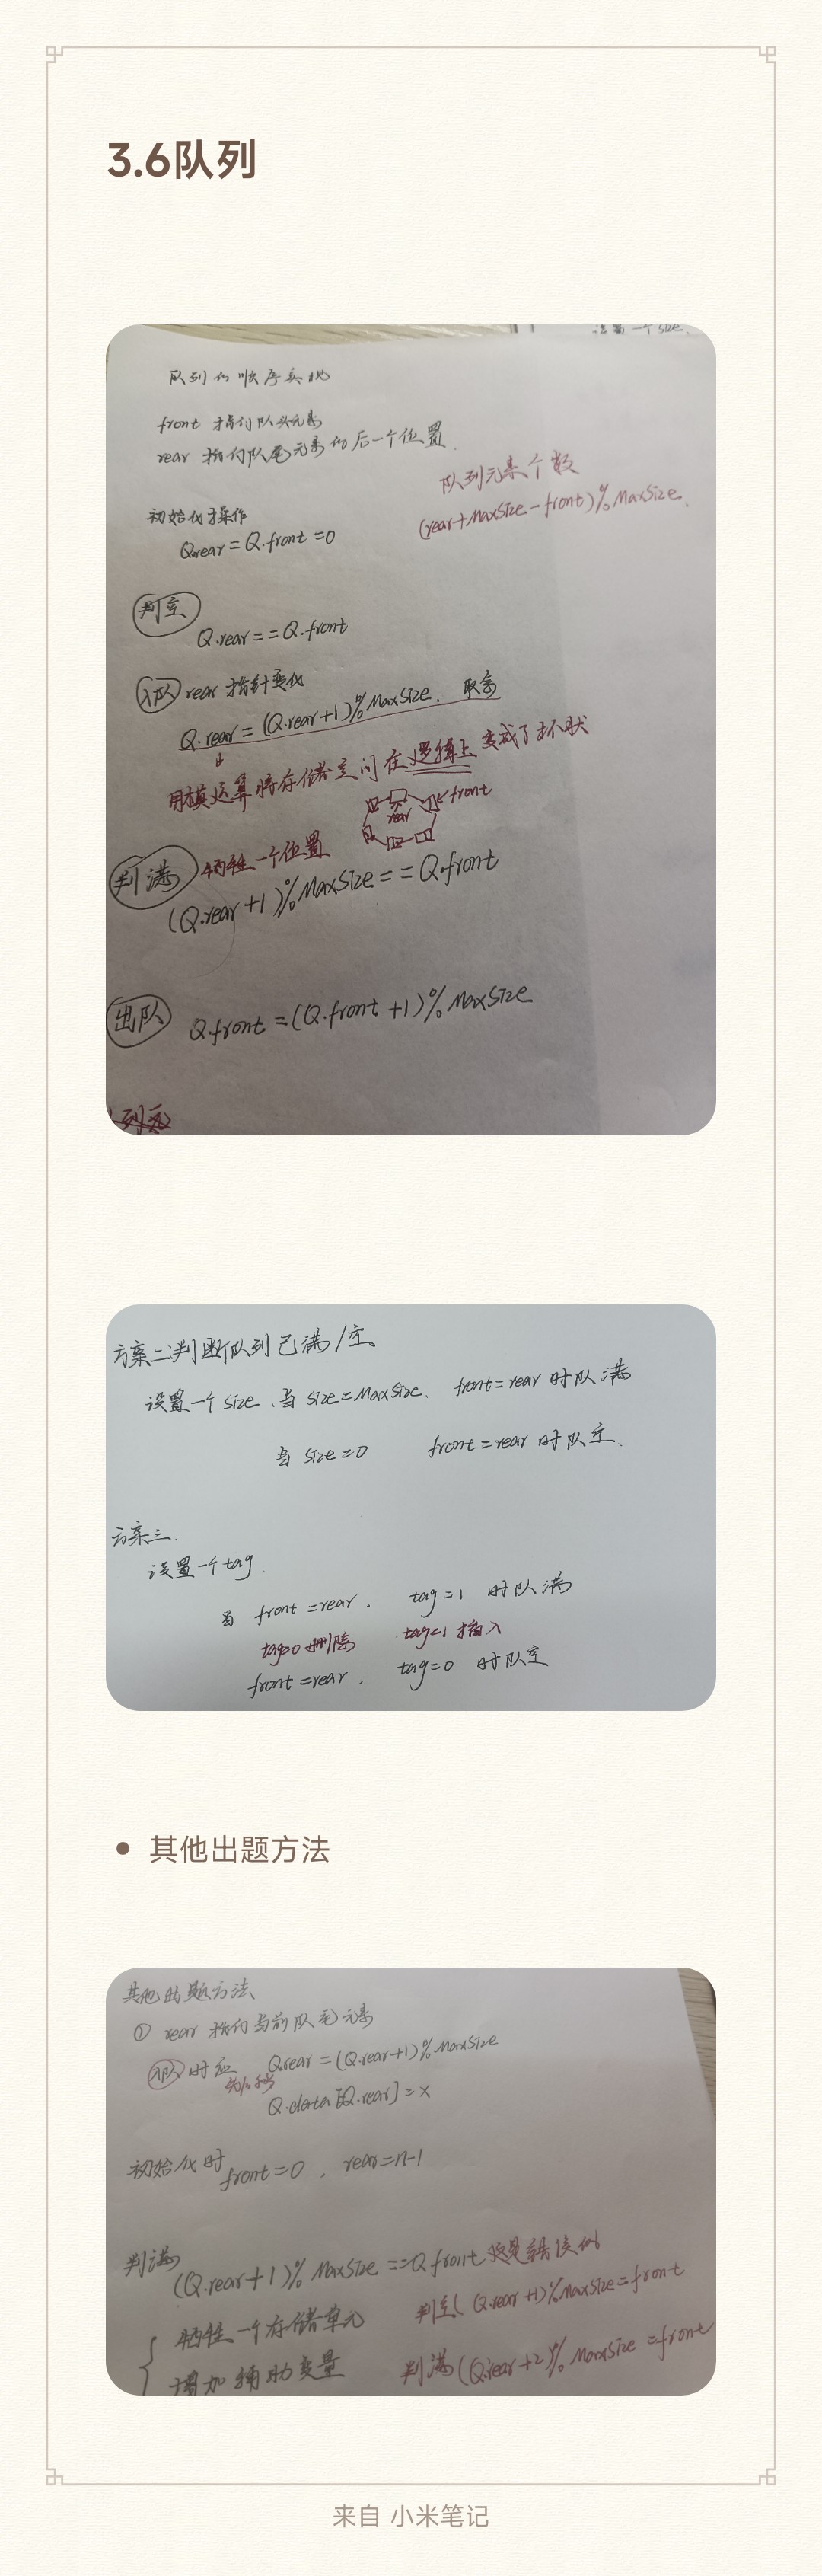 3.6队列
设置一个size.
队列的顺序实现
front 指向队头元素
rear 指向队尾元素的后一个位置.
队列元素个数
(rear+MaxSize-front)%MaxSize.
初始化操作
Q.rear=Q.front=0
判空
Q.rear==Q.front
入队 rear 指针变化
Q.rear=(Q.rear+1)%MaxSize. 取余
用模运算将存储空间在逻辑上变成了环状
front
rear
判满 牺牲一个位置
(Q.rear+1)%MaxSize==Q.front
出队 Q.front=(Q.front+1)%MaxSize
方案二判断队列已满/空
设置一个size.当 size=MaxSize. front=rear 时队满
当 size=0 front=rear 时队空.
方案三.
设置一个tag.
当 front=rear. tag=1 时队满
tag=0删除 tag=1插入
front=rear, tag=0 时队空
• 其他出题方法
其他出题方法
① rear 指向当前队尾元素
入队时应 Q.rear=(Q.rear+1)%MaxSize
Q.data[Q.rear]=x
初始化时 front=0, rear=n-1
判满
(Q.rear+1)%MaxSize==Q.front 这是错误的
牺牲一个存储单元 判空(Q.rear+1)%MaxSize=front
增加辅助变量 判满(Q.rear+2)%MaxSize=front
来自 小米笔记